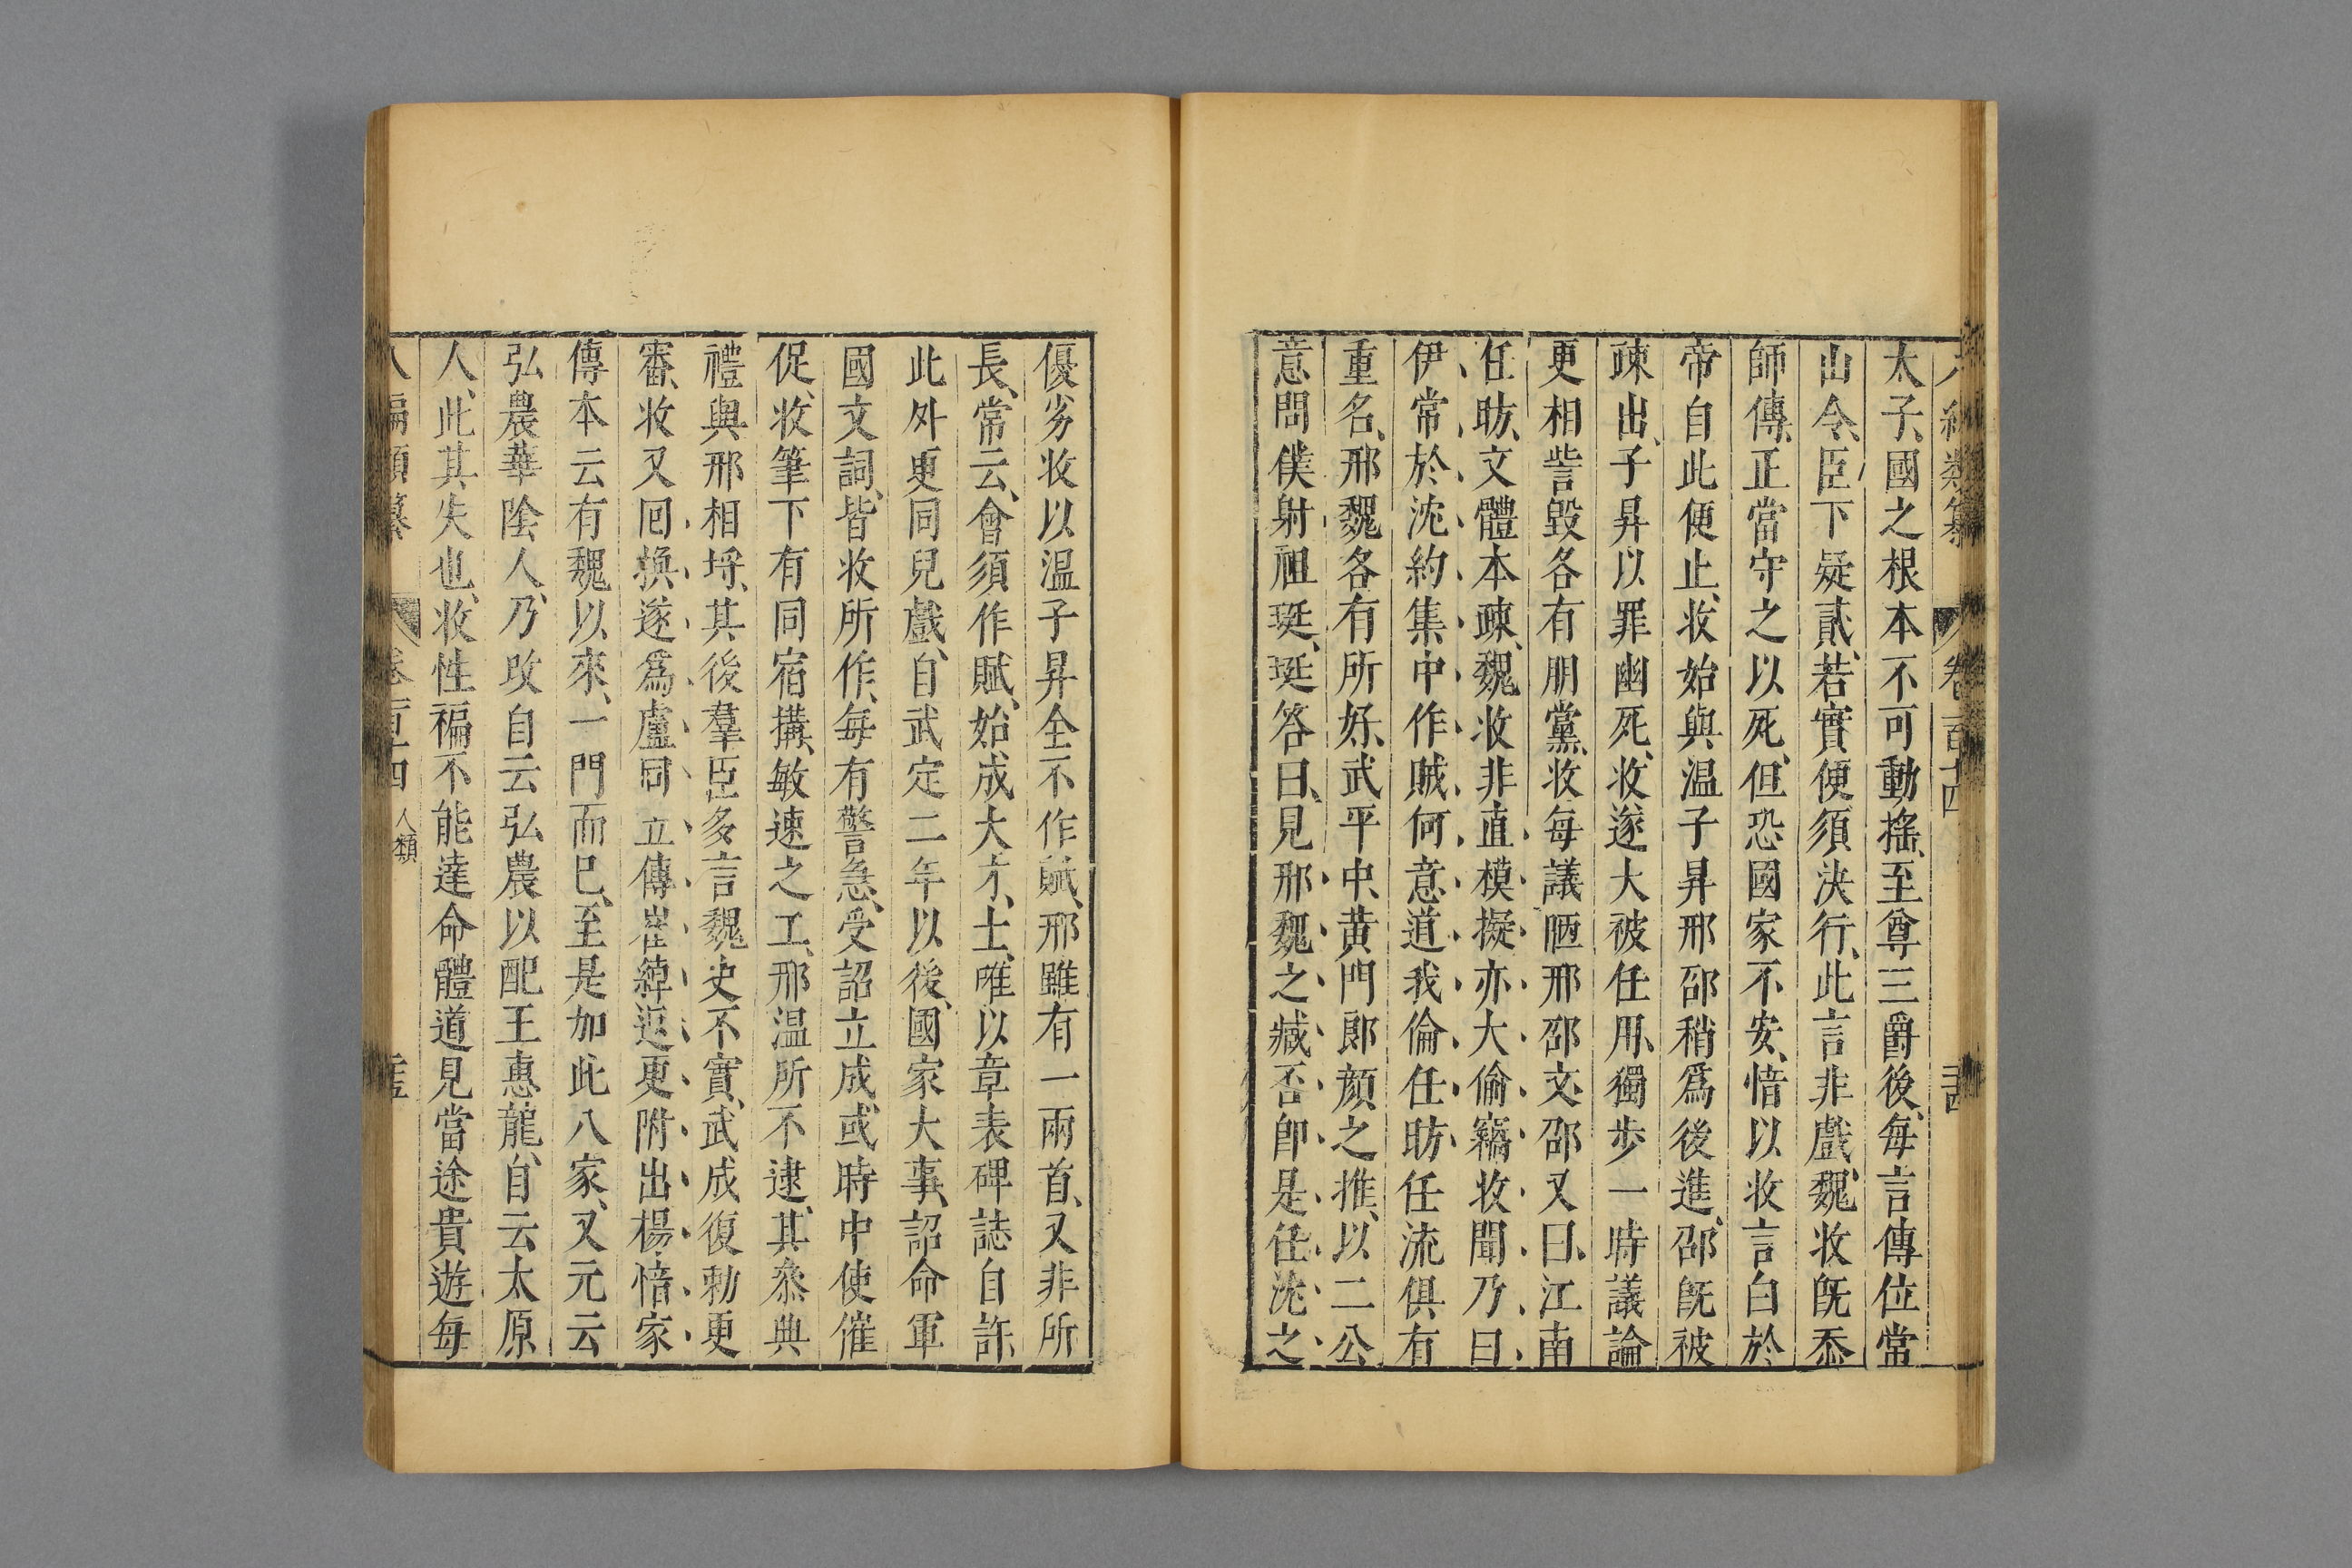 太子、國之根本不可動搖、至尊三爵後、每言傳位常
山令、臣下疑貳、若實便須決行、此言非戲、魏收旣忝
師傳、正當守之以死、但恐國家不安、愔以收言白於
帝自此便止、收始與温子昇邢邵稍爲後進、邵旣被
疎出、子昇以罪幽死、收遂大被任用、獨步一時議論
更相訾毀各有朋黨、收每議陋邢邵文、邵又曰、江南
任昉、文體本疎、魏收非直模擬、亦大偷竊、收聞乃曰、
伊常於沈約集中作賊、何意道我偷任昉、任沈俱有
重名、邢魏各有所好、武平中、黄門郎顏之推、以二公
意問僕射祖珽、珽答曰、見邢魏之臧否、卽是任沈之
優劣收以温子昇全不作賦、邢雖有一兩首、又非所
長、常云、會須作賦、始成大才士、唯以章表碑誌自許、
此外更同兒戲、自武定二年以後、國家大事、詔命軍
國文詞、皆收所作、每有警急、受詔立成、或時中使催
促、收筆下有同宿搆、敏速之工、邢温所不逮、其叅典
禮與邢相埒、其後羣臣多言魏史不實、武成復勅更
審、收又囘換、遂爲盧同立傳、崔綽返更附出、楊愔家
傳本云有魏以來、一門而已、至是加此八家、又元云
弘農華陰人、乃改自云弘農以配王惠龍、自云太原
人、此其失也、收性褊不能達命體道見當途貴遊每
卷百十四 人類